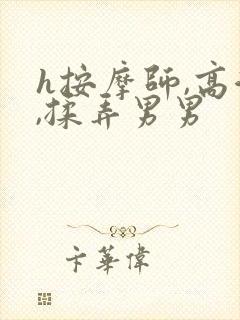 h按摩師,高
,揉弄男男
卞華偉